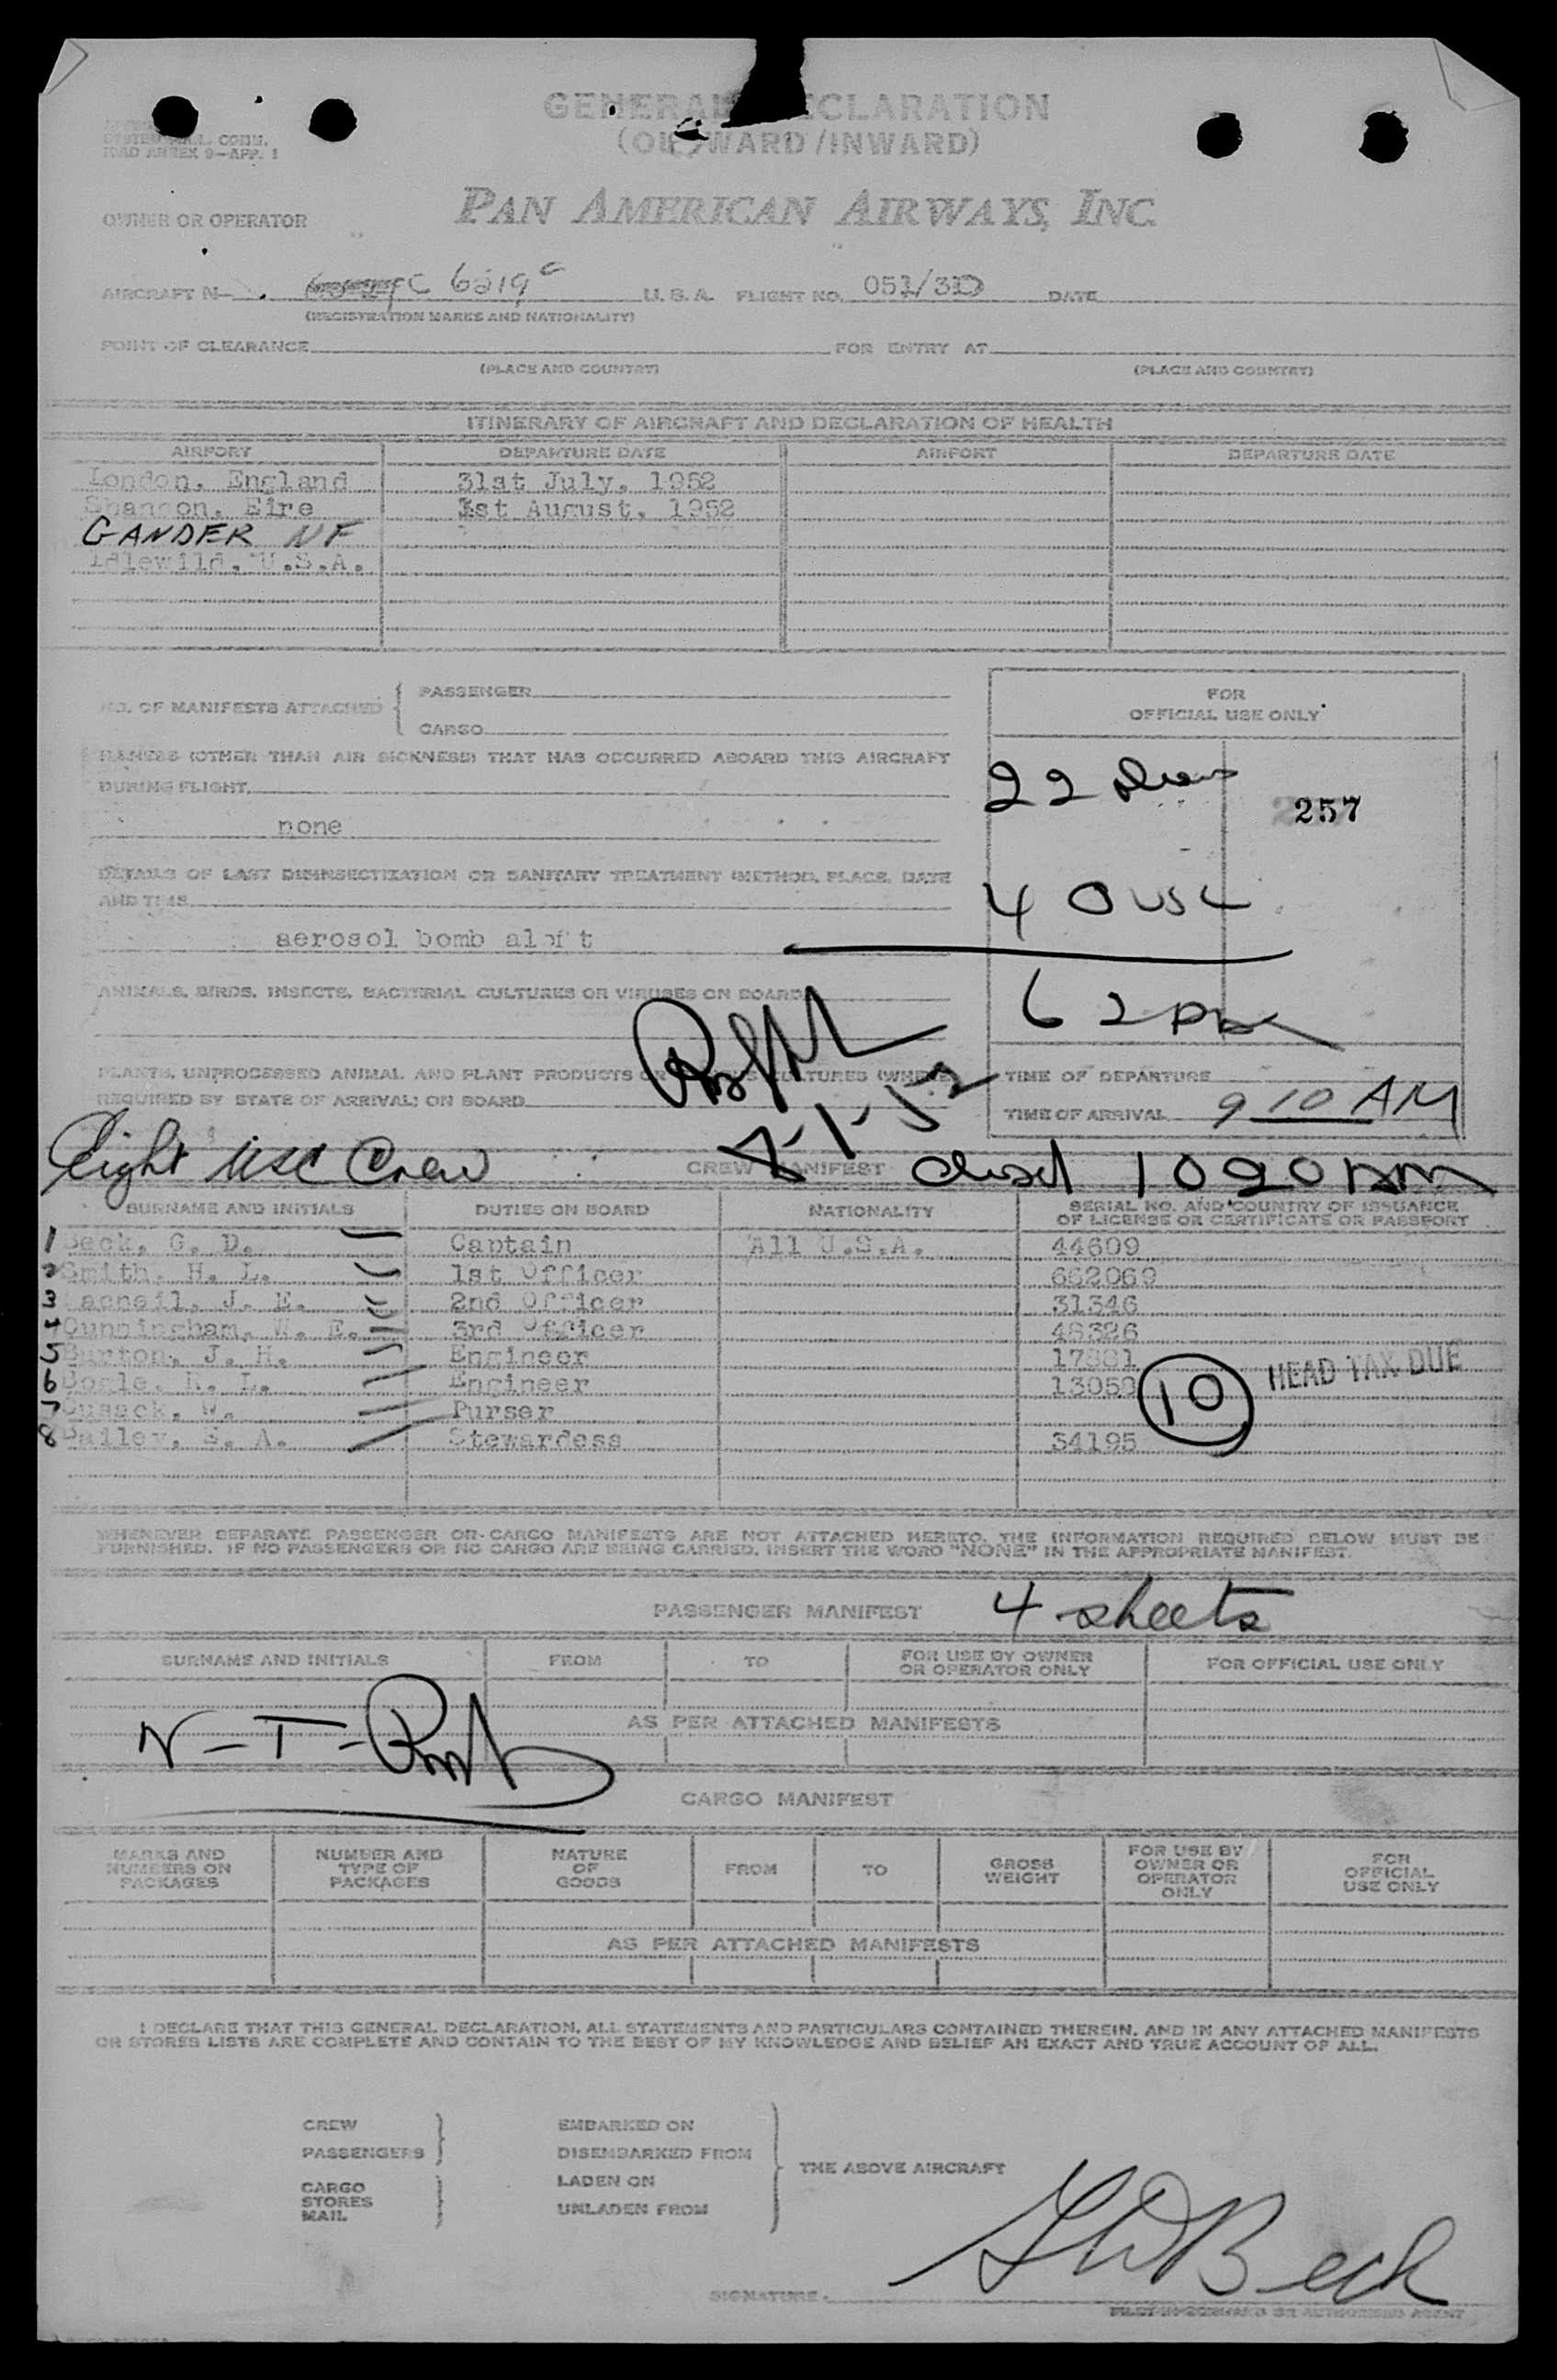 GENERAL DECLARATION
(OUTWARD/INWARD)
IDAD ANNEX 9—APP. 1
OWNER OR OPERATOR
PAN AMERICAN AIRWAYS, INC.
AIRCRAFT N— 6519 U. S. A. FLIGHT NO. 051/30 DATE
(REGISTRATION MARKS AND NATIONALITY)
POINT OF CLEARANCE FOR ENTRY AT
(PLACE AND COUNTRY) (PLACE AND COUNTRY)
ITINERARY OF AIRCRAFT AND DECLARATION OF HEALTH
AIRPORT DEPARTURE DATE AIRPORT DEPARTURE DATE
London, England 31st July, 1952
Shannon, Eire 1st August, 1952
GANDER NF
Idlewild, U.S.A.
NO. OF MANIFESTS ATTACHED { PASSENGER
CARGO
FOR
OFFICIAL USE ONLY
ILLNESS (OTHER THAN AIR SICKNESS) THAT HAS OCCURRED ABOARD THIS AIRCRAFT
DURING FLIGHT.
none
22
257
DETAILS OF LAST DISINSECTIZATION OR SANITARY TREATMENT (METHOD, PLACE, DATE
AND TIME
aerosol bomb aloft
40 usc
ANIMALS, BIRDS, INSECTS, BACTERIAL CULTURES OR VIRUSES ON BOARD
62
PLANTS, UNPROCESSED ANIMAL AND PLANT PRODUCTS OR CULTURES (WHERE
REQUIRED BY STATE OF ARRIVAL) ON BOARD
8-1-52
TIME OF DEPARTURE
TIME OF ARRIVAL 9 10 AM
Eight USC Crew
CREW MANIFEST closed 1020 AM
SURNAME AND INITIALS DUTIES ON BOARD NATIONALITY SERIAL NO. AND COUNTRY OF ISSUANCE
OF LICENSE OR CERTIFICATE OR PASSPORT
1 Beck, G. D. Captain All U.S.A. 44609
2 Smith, H. L. 1st Officer 662069
3 Macneil, J. E. 2nd Officer 31346
4 Cunningham, W. E. 3rd Officer 48326
5 Burton, J. H. Engineer
6 Engineer 13059
10
HEAD TAX DUE
7 Cusack, W. Purser
8 Bailey, E. A. Stewardess 34195
WHENEVER SEPARATE PASSENGER OR CARGO MANIFESTS ARE NOT ATTACHED HERETO, THE INFORMATION REQUIRED BELOW MUST BE
FURNISHED. IF NO PASSENGERS OR NO CARGO ARE BEING CARRIED, INSERT THE WORD "NONE" IN THE APPROPRIATE MANIFEST.
PASSENGER MANIFEST 4 sheets
SURNAME AND INITIALS FROM TO FOR USE BY OWNER
OR OPERATOR ONLY FOR OFFICIAL USE ONLY
AS PER ATTACHED MANIFESTS
N-T-
CARGO MANIFEST
MARKS AND
NUMBERS ON
PACKAGES
NUMBER AND
TYPE OF
PACKAGES
NATURE
OF
GOODS
FROM
TO
GROSS
WEIGHT
FOR USE BY
OWNER OR
OPERATOR
ONLY
FOR
OFFICIAL
USE ONLY
AS PER ATTACHED MANIFESTS
I DECLARE THAT THIS GENERAL DECLARATION, ALL STATEMENTS AND PARTICULARS CONTAINED THEREIN, AND IN ANY ATTACHED MANIFESTS
OR STORES LISTS ARE COMPLETE AND CONTAIN TO THE BEST OF MY KNOWLEDGE AND BELIEF AN EXACT AND TRUE ACCOUNT OF ALL.
CREW
PASSENGERS
CARGO
STORES
MAIL
EMBARKED ON
DISEMBARKED FROM
LADEN ON
UNLADEN FROM
THE ABOVE AIRCRAFT
G D Beck
SIGNATURE.
PILOT-IN-COMMAND OR AUTHORIZED AGENT